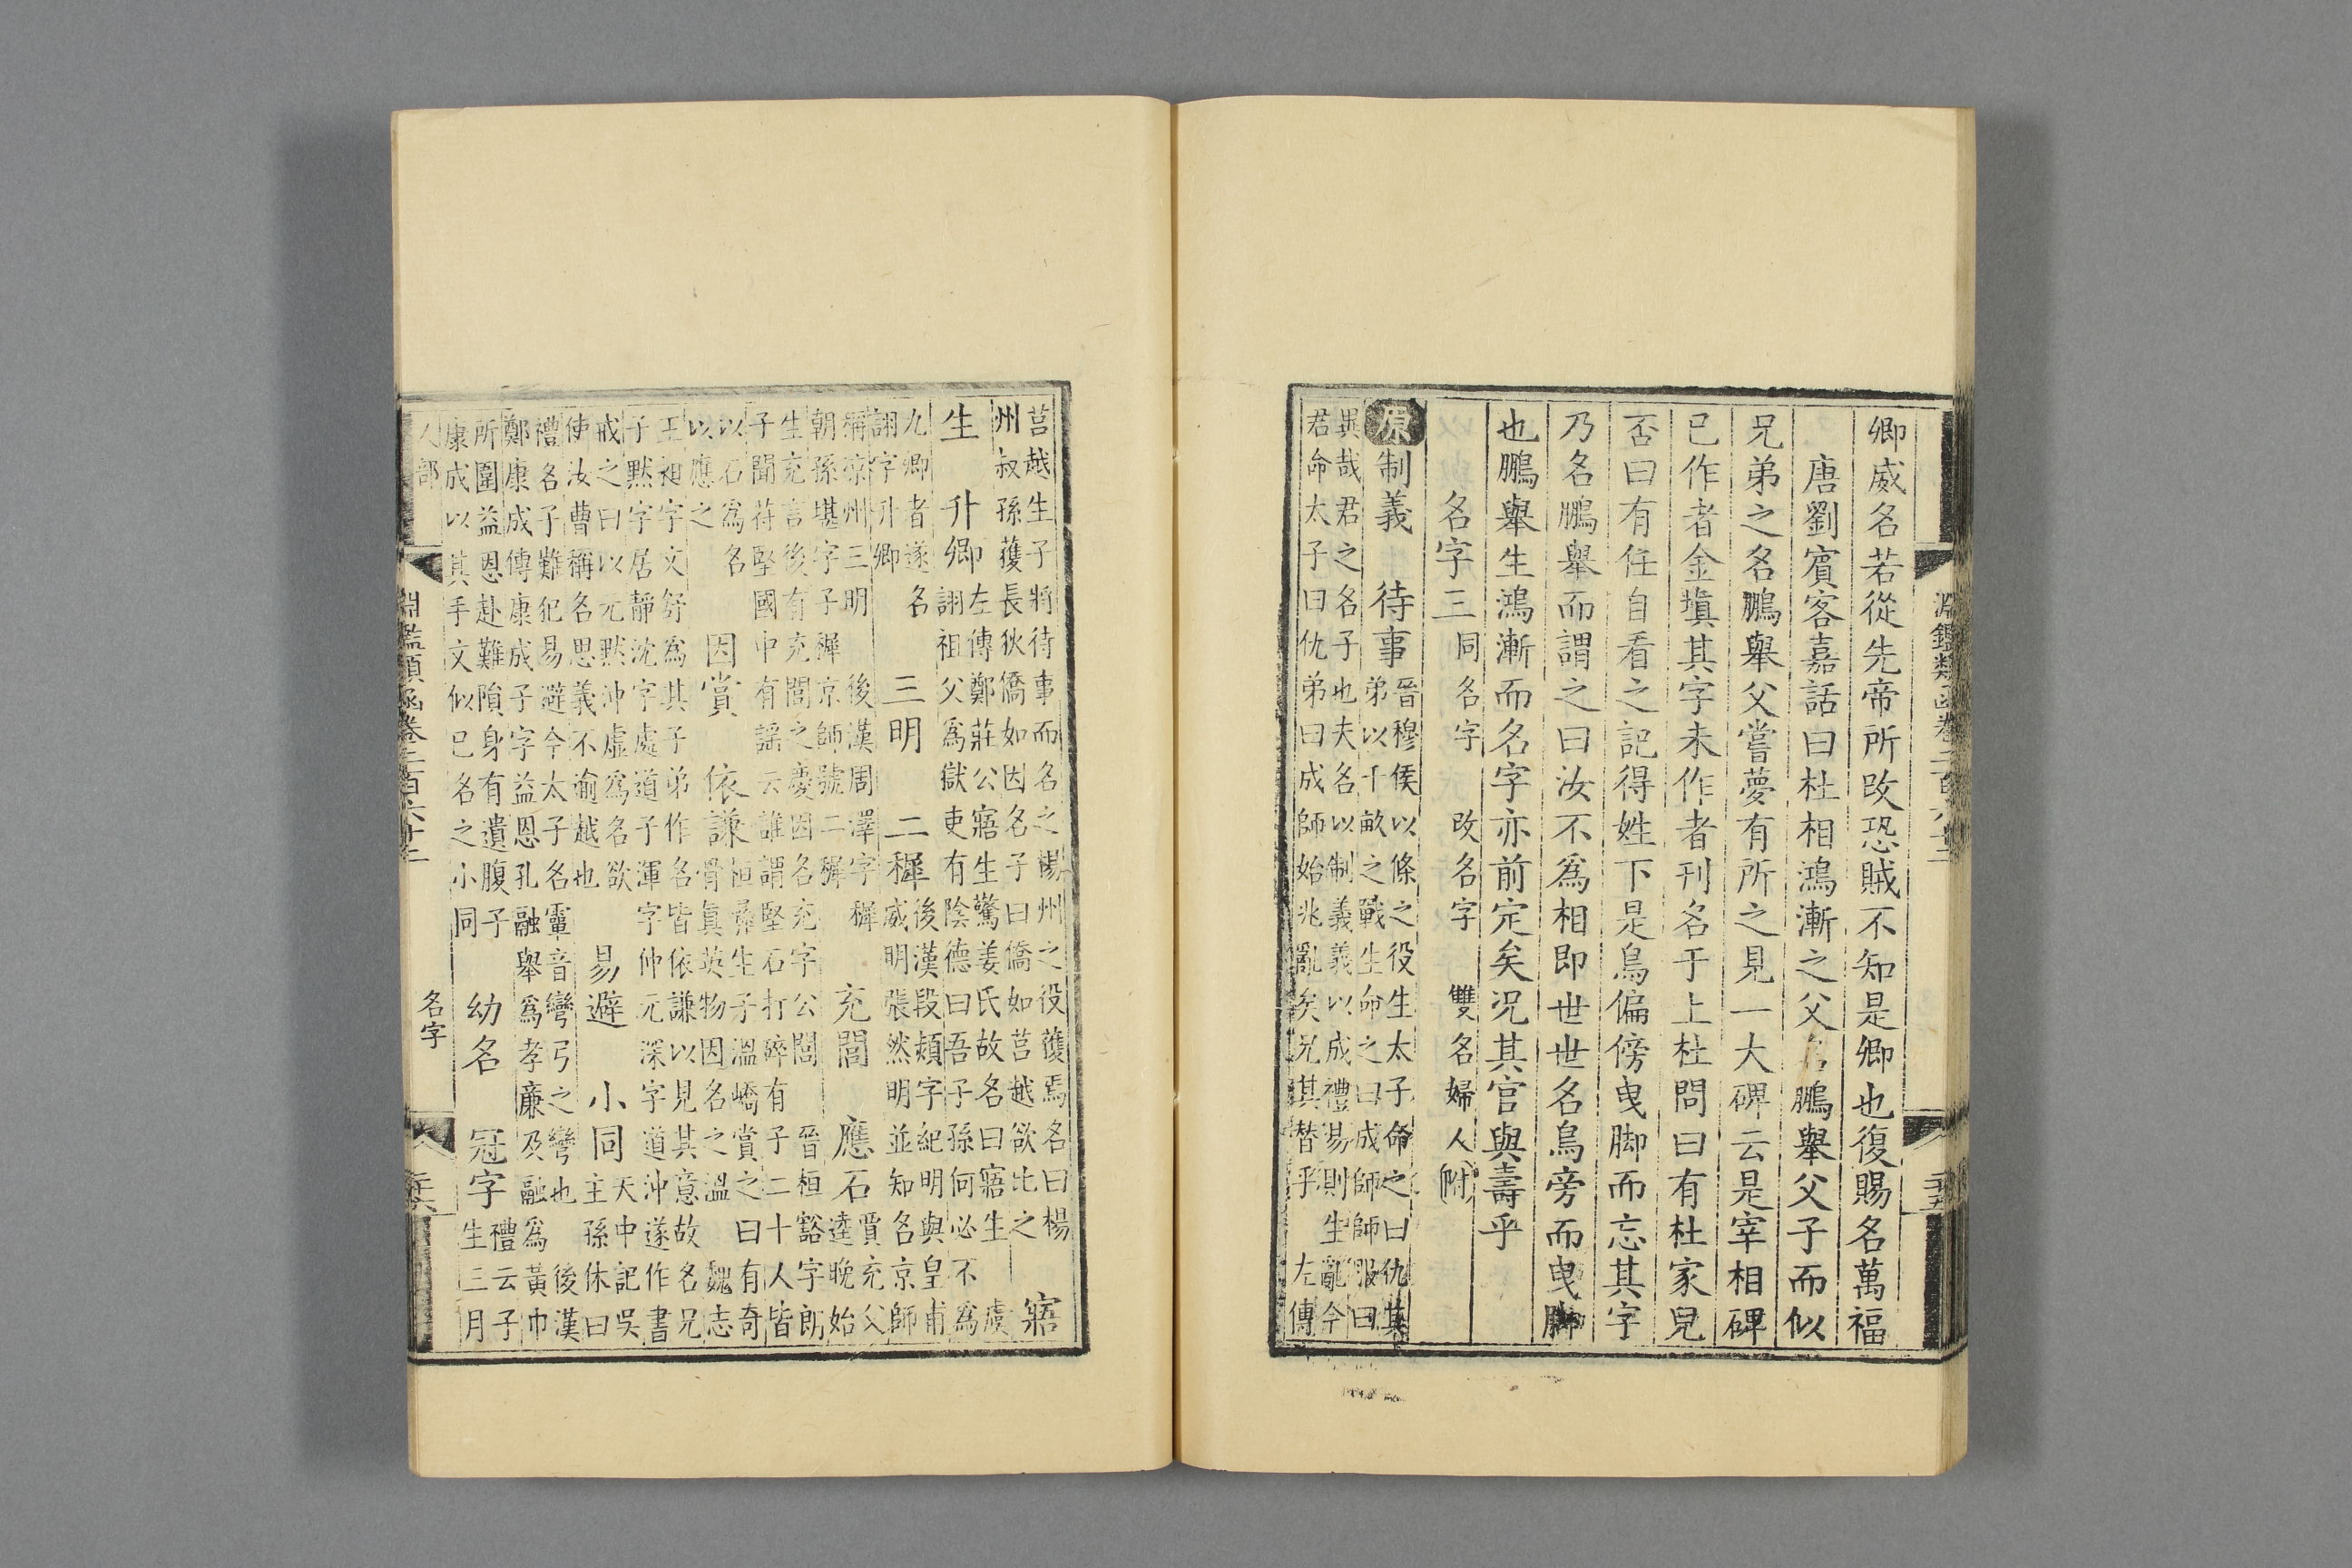 淵鑑類函卷二百六十二 二十五
卿威名若從先帝所改恐賊不知是卿也復賜名萬福
唐劉賓客嘉話曰杜相鴻漸之父名鵬舉父子而似
兄弟之名鵬舉父嘗夢有所之見一大碑云是宰相碑
已作者金填其字未作者刊名于上杜問曰有杜家兒
否曰有任自看之記得姓下是鳥偏傍曳脚而忘其字
乃名鵬舉而謂之曰汝不為相即世世名鳥旁而曳脚
也鵬舉生鴻漸而名字亦前定矣況其官與壽乎
名字三 同名字 改名字 雙名 婦人附
原 制義 待事 晉穆侯以條之役生太子命之曰仇其
弟以千畝之戰生命之曰成師師服曰
異哉君之名子也夫名以制義義以成禮易則生亂今
君命太子曰仇弟曰成師始兆亂矣兄其替乎 左傳
莒越生子將待事而名之陽州之役獲焉名曰楊
州叔孫獲長狄僑如因名子曰僑如莒越欲比之
寤
生 升卿 左傳鄭莊公寤生驚姜氏故名曰寤生 虞
詡祖父為獄吏有陰德曰吾子孫何必不為
九卿者遂名
詡字升卿
三明 二穉 後漢段熲字紀明與皇甫
威明張然明並知名京師
稱涼州三明 後漢周澤字穉
朝孫堪字子穉京師號二穉
充閭 應石 賈充父
逵晚始
生充言後有充閭之慶因名充字公閭 晉桓豁字朗
子聞苻堅國中有謠云誰謂堅石打碎有子二十人皆
以石為名
以應之
因賞 依謙 桓彝生子溫嶠賞之曰有奇
骨真英物因名之溫 魏志
王昶字文舒為其子弟作名皆依謙以見其意故名兄
子默字居靜沈字處道子渾字仲元深字道沖遂作書
戒之曰以元默沖虛為名欲
使汝曹稱名思義不逾越也
易避 小同 天中記吳
主孫休曰
禮名子難犯易避今太子名𩅦音彎弓之彎也 後漢
鄭康成傳康成子字益恩孔融舉為孝廉及融為黃巾
所圍益恩赴難隕身有遺腹子
康成以其手文似已名之小同
幼名 冠字 禮云子
生三月
人部 淵鑑類函卷二百六十二 名字 二十六